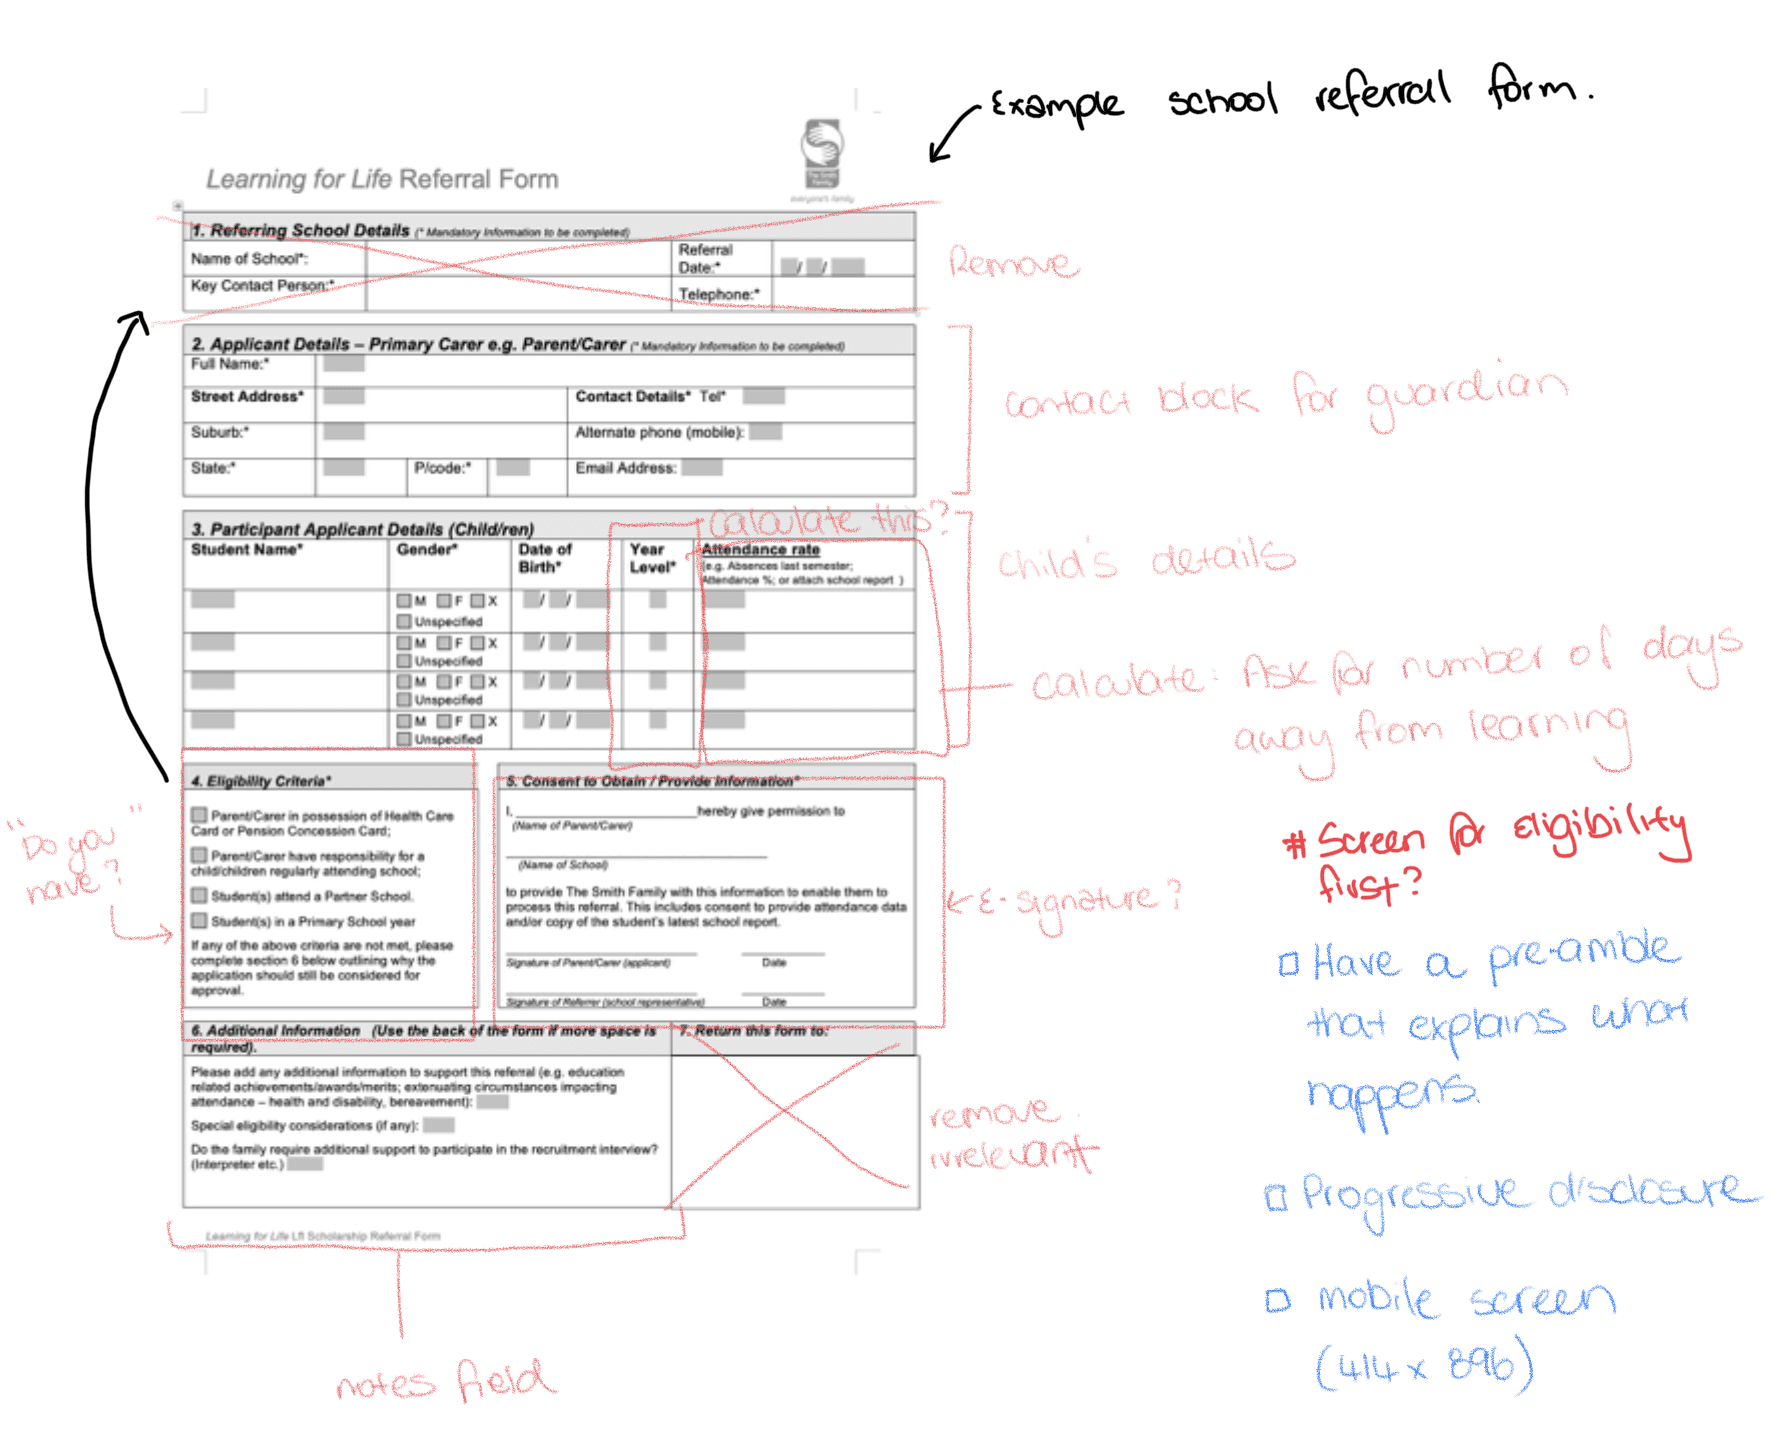 Example school referral form.
The Smith
Family
everyone's family
Learning for Life Referral Form
1. Referring School Details (* Mandatory Information to be completed)
Name of School*:
Referral
Date:*
/ /
Key Contact Person:*
Telephone:*
Remove
2. Applicant Details – Primary Carer e.g. Parent/Carer (* Mandatory Information to be completed)
Full Name:*
Street Address*
Contact Details* Tel*
Suburb:*
Alternate phone (mobile):
State:*
P/code:*
Email Address:
contact block for guardian
calculate this?
3. Participant Applicant Details (Child/ren)
Student Name*
Gender*
Date of
Birth*
Year
Level*
Attendance rate
(e.g. Absences last semester;
Attendance %; or attach school report )
M F X
Unspecified
/ /
M F X
Unspecified
/ /
M F X
Unspecified
/ /
M F X
Unspecified
/ /
child's details
calculate: Ask for number of days
away from learning
4. Eligibility Criteria*
Parent/Carer in possession of Health Care
Card or Pension Concession Card;
Parent/Carer have responsibility for a
child/children regularly attending school;
Student(s) attend a Partner School.
Student(s) in a Primary School year
If any of the above criteria are not met, please
complete section 6 below outlining why the
application should still be considered for
approval.
"Do you
have"?
5. Consent to Obtain / Provide Information*
I, hereby give permission to
(Name of Parent/Carer)
(Name of School)
to provide The Smith Family with this information to enable them to
process this referral. This includes consent to provide attendance data
and/or copy of the student's latest school report.
Signature of Parent/Carer (applicant)
Date
Signature of Referrer (school representative)
Date
E-signature?
# Screen for eligibility
first?
Have a pre-amble
that explains what
happens.
Progressive disclosure
mobile screen
(414 x 896)
6. Additional Information (Use the back of the form if more space is
required).
Please add any additional information to support this referral (e.g. education
related achievements/awards/merits; extenuating circumstances impacting
attendance – health and disability, bereavement):
Special eligibility considerations (if any):
Do the family require additional support to participate in the recruitment interview?
(Interpreter etc.)
7. Return this form to:
remove
irrelevant
Learning for Life LfL Scholarship Referral Form
notes field